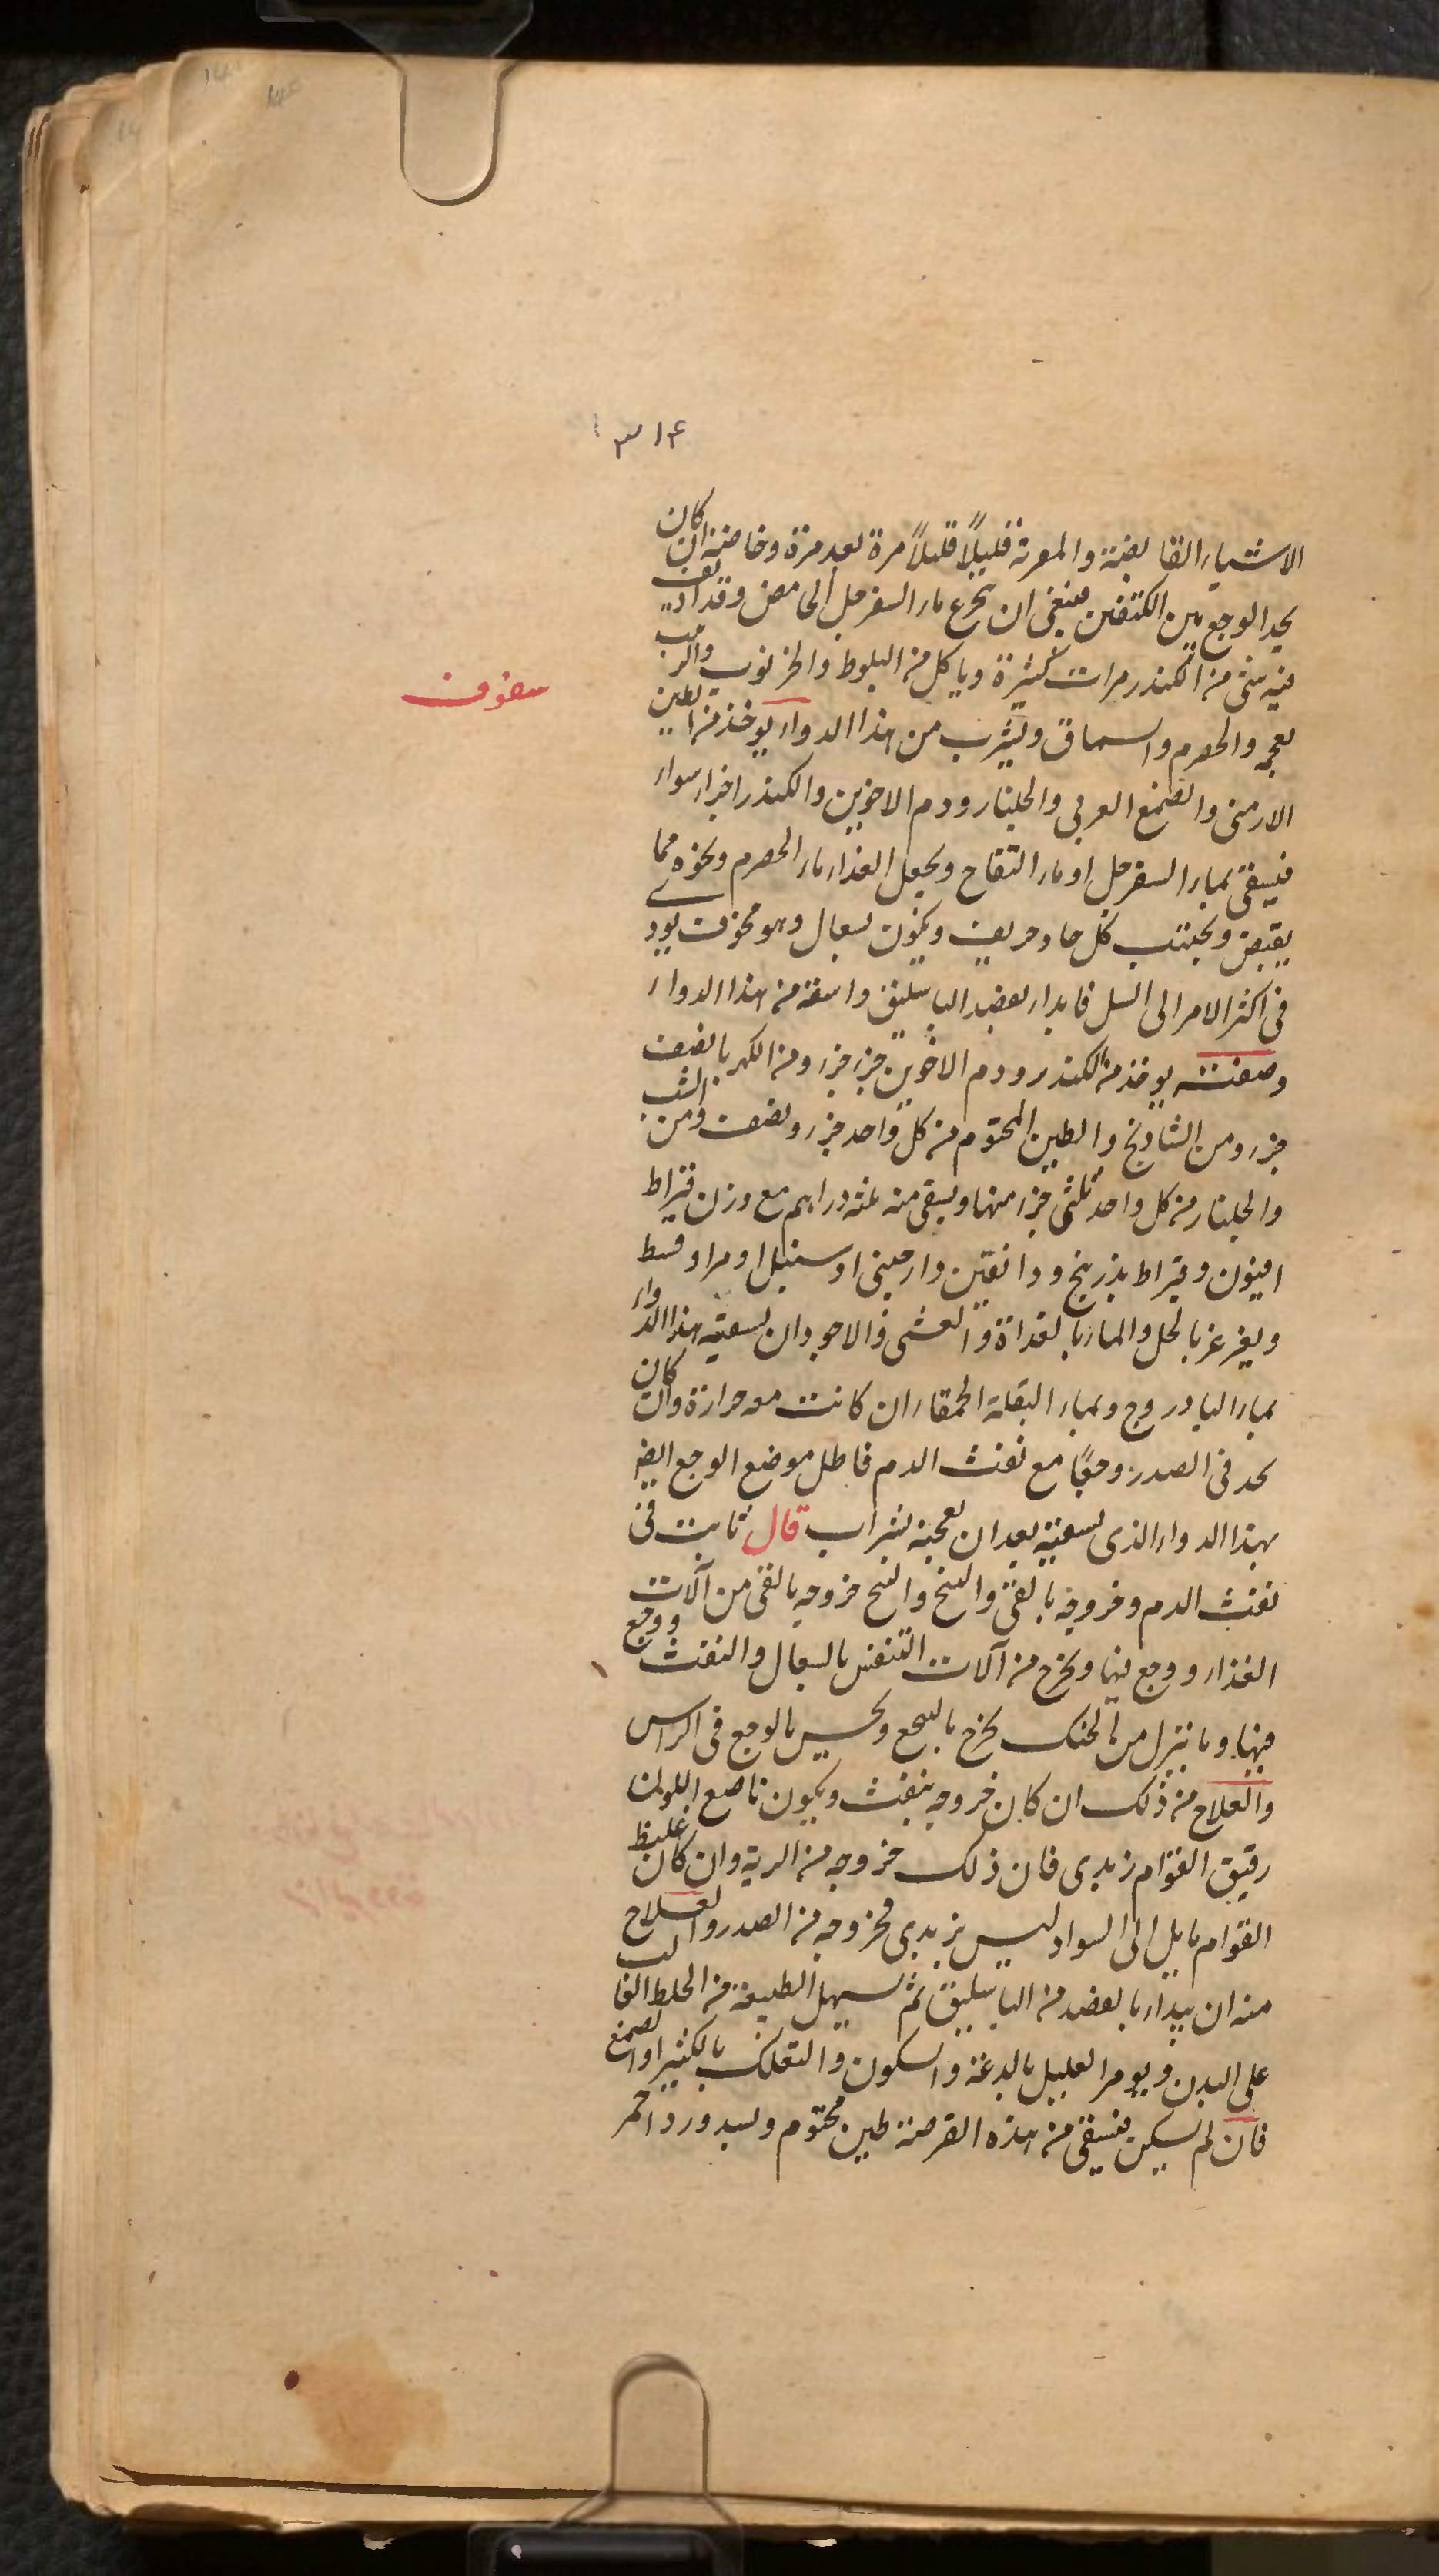 ٣١۴
الاشياء القابضة والمغرية قليلًا قليلًا مرة بعد مرة وخاصة ان كان
يجد الوجع بين الكتفين فينبغى ان يجرع ماء السفرجل الحامض وقد اديف
فيه شئ من الكندر مرات كثيرة وياكل من البلوط والخرنوب والزبيب
بعجمه والحصرم والسماق ويشرب من هذا الدواء يوخذ من الطين
سفوف
الارمنى والصمغ العربى والجلنار ودم الاخوين والكندر اجزاء سواء
فيسقى بماء السفرجل او ماء التفاح ويجعل الغذاء ماء الحصرم ونحوه مما
يقبض ويجتنب كل حاد حريف ويكون بسعال وهو مخوف يودى
فى اكثر الامر الى السل فابداء بفصد الباسليق واسقه من هذا الدواء
وصفته يوخذ من الكندر ودم الاخوين جزء جزء ومن الكهربا نصف
جزء ومن الشاذنج والطين المختوم من كل واحد جزء ونصف ومن الشب
والجلنار من كل واحد ثلثى جزء منها ويسقى منه ثلثه دراهم مع وزن قيراط
افيون وقيراط بذر بنج ودانقين دارصينى او سنبل او مر او قسط
ويغرغر بالخل والماء بالغداة والعشى والاجود ان يسقيه هذا الدواء
بماء البادروج وبماء البقلة الحمقاء ان كانت معه حرارة وان كان
يجد فى الصدر وجعًا مع نفث الدم فاطل موضع الوجع ايضا
بهذا الدواء الذى يسقيه بعد ان يعجنه بشراب قال ثابت فى
نفث الدم وخروجه بالقئ والتنخع والتنحنح خروجه بالقئ من آلات
الغذاء ووجع فيها ويخرج من آلات التنفس بالسعال والنفث ووجع
فيها وما ينزل من الحنك يخرج بالتنخع ويحس بالوجع فى الراس
والعلاج من ذلك ان كان خروجه بنفث ويكون ناصع اللون
رقيق القوام زبدى فان ذلك خروجه من الرية وان كان غليظ
القوام مايل الى السواد ليس بزبدى فخروجه من الصدر والعلاج
منه ان يبداء بالفصد من الباسليق ثم يسهل الطبيعة من الخلط الغالب
على البدن ويومر العليل بالدعة والسكون والتعلك بالكثيرا والصمغ
فان لم يسكن فيسقى من هذه القرصة طين مختوم وبسد وورد احمر